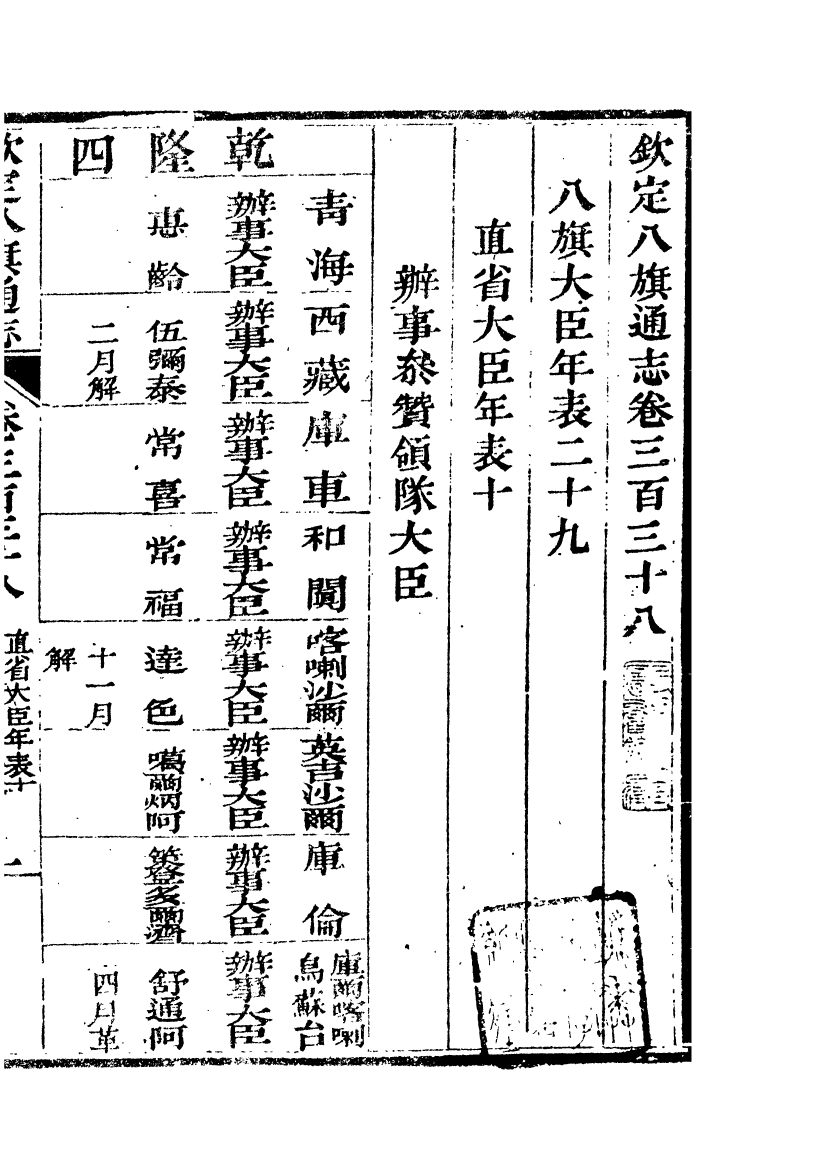 欽定八旗通志卷三百三十八
八旗大臣年表二十九
直省大臣年表十
辦事叅贊領隊大臣
青海 西藏 庫車 和闐 喀喇沙爾 英吉沙爾 庫倫 庫爾喀喇烏蘇台
乾 辦事大臣 辦事大臣 辦事大臣 辦事大臣 辦事大臣 辦事大臣 辦事大臣 辦事大臣
隆 惠齡 伍彌泰 常喜 常福 達色 噶爾炳阿 桑齋多爾濟 舒通阿
四 二月解 十一月解 四月革
欽定八旗通志 卷三百三十八 直省大臣年表十 一